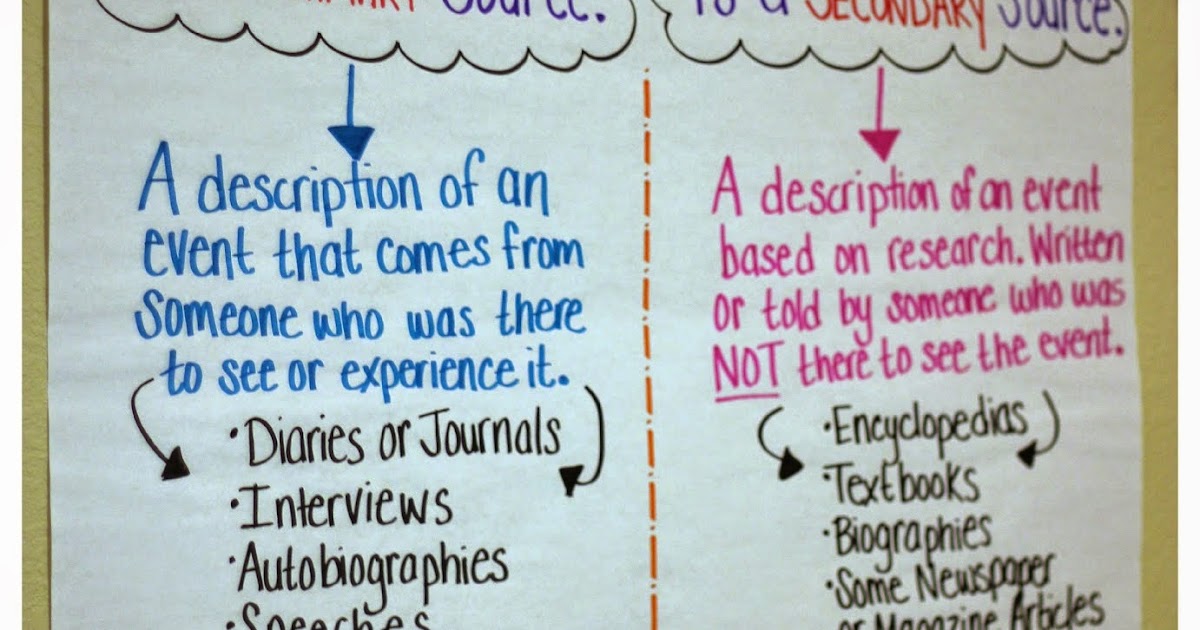 PRIMARY Source.
A description of an
event that comes from
Someone who was there
to see or experience it.
·Diaries or Journals
·Interviews
·Autobiographies
·Speeches
to a SECONDARY Source.
A description of an event
based on research. Written
or told by someone who was
NOT there to see the event.
·Encyclopedias
·Textbooks
·Biographies
·Some Newspaper
or Magazine Articles